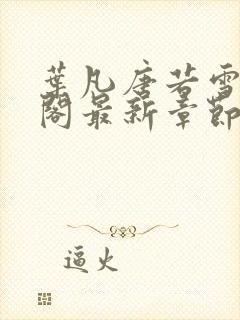 葉凡唐若雪
閣最新章節
逼火